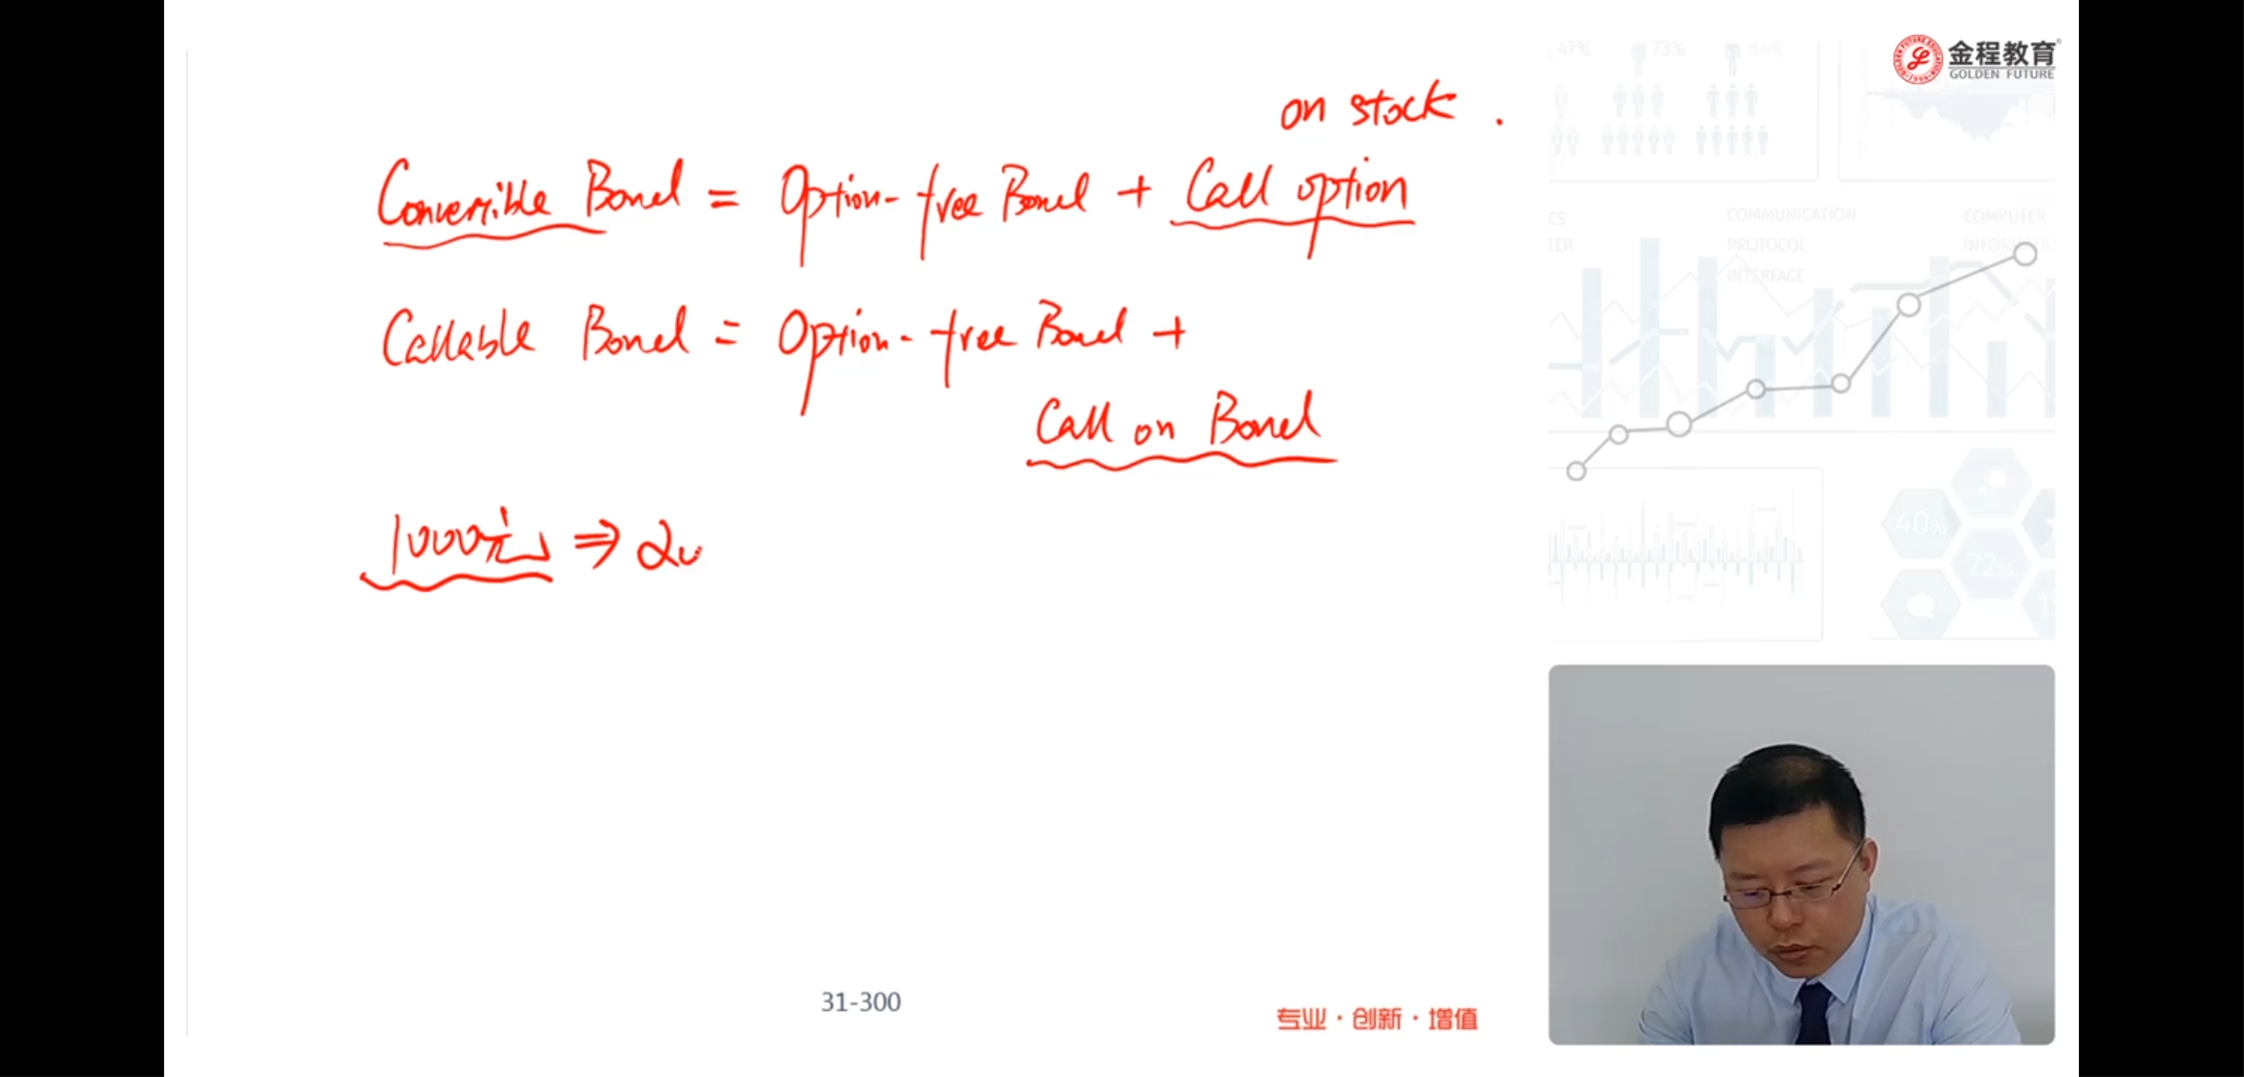 金程教育
GOLDEN FUTURE
on stock.
Convertible Bond = Option-free Bond + Call option
Callable Bond = Option-free Bond +
Call on Bond
1000元 ⇒ 20
47%
73%
COMMUNICATION
PROTOCOL
INTERFACE
COMPUTER
40%
72%
31-300
专业·创新·增值